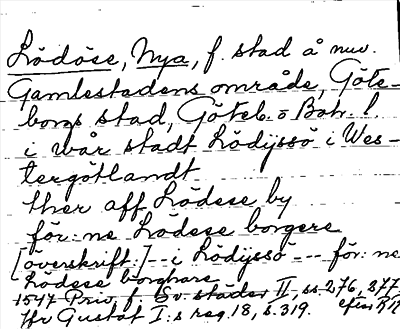 Lödöse, Nya, f. stad å nuv.
Gamlestadens område, Göte-
borgs stad, Göteb. o Boh. l
i wår stadt Lödijssö i Wes-
tergötlandt
ther aff Lödese by
för:ne Lödese borgere
[överskrift:]--i Lödijssö --- för:ne
Lödese borghare
1547 Priv. f. Sv. städer II, ss. 276, 277
Gustaf I:s reg. 18, s. 319. efter RR